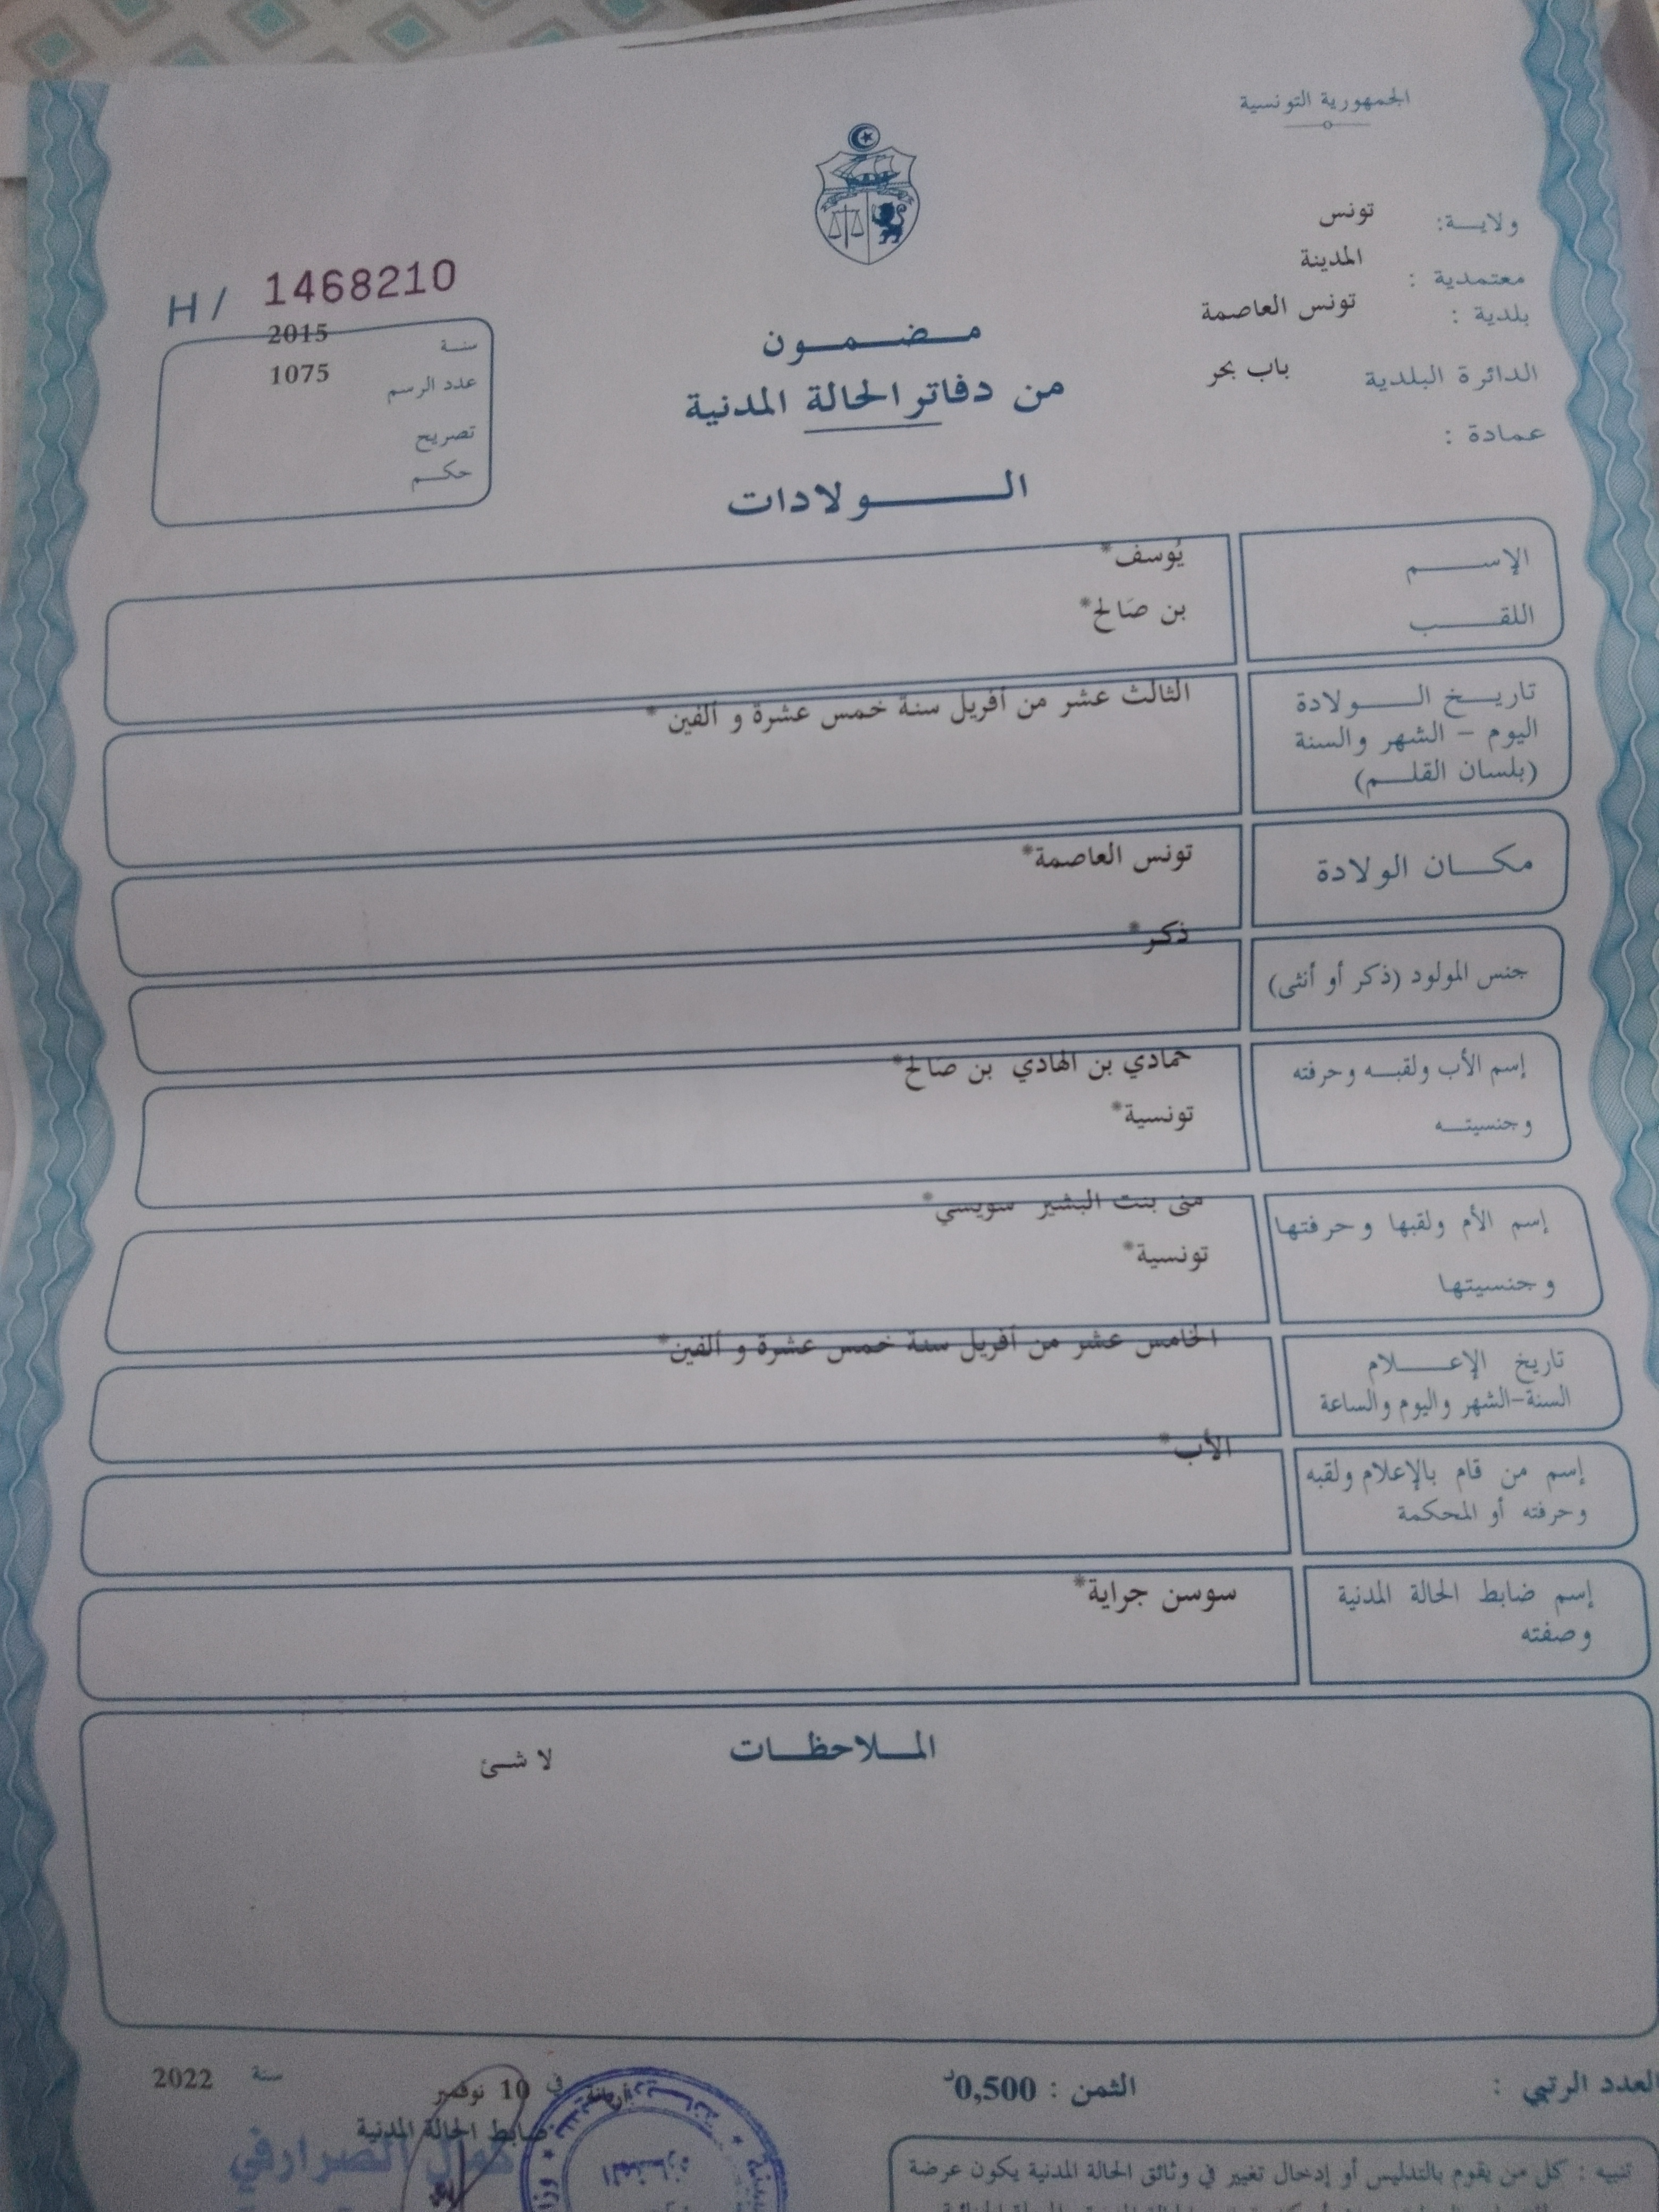 الجمهورية التونسية
ولايـــة: تونس
معتمدية : المدينة
بلدية : تونس العاصمة
الدائرة البلدية باب بحر
عمادة :
H/ 1468210
سنـة 2015
عدد الرسم 1075
تصريح
حكـم
مـضـمـون
من دفاتر الحالة المدنية
الـولادات
الإســـم يُوسف*
اللقـــب بن صَالح*
تاريـخ الـولادة الثالث عشر من أفريل سنة خمس عشرة و ألفين *
اليوم – الشهر والسنة
(بلسان القلـم)
مكـان الولادة تونس العاصمة*
جنس المولود (ذكر أو أنثى) ذكر*
إسم الأب ولقبـه وحرفته حمادي بن الهادي بن صَالح*
وجنسيتـه تونسية*
إسم الأم ولقبها وحرفتها منى بنت البشير سويسي*
وجنسيتها تونسية*
تاريخ الإعـلام الخامس عشر من أفريل سنة خمس عشرة و ألفين*
السنة-الشهر واليوم والساعة
إسم من قام بالإعلام ولقبه الأب*
وحرفته أو المحكمة
إسم ضابط الحالة المدنية سوسن جراية*
وصفته
المـلاحظـات
لا شئ
العدد الرتبي :
الثمن : 0,500د
أريانة في 10 نوفمبر سنة 2022
ضابط الحالة المدنية
كمال الصرارفي
المنـازه
تنبيه : كل من يقوم بالتدليس أو إدخال تغيير في وثائق الحالة المدنية يكون عرضة